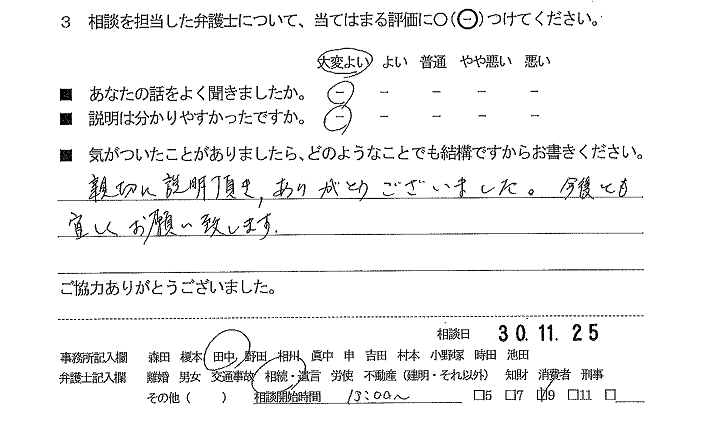 3 相談を担当した弁護士について、当てはまる評価に○(⊖)つけてください。
大変よい よい 普通 やや悪い 悪い
■ あなたの話をよく聞きましたか。 − − − − −
■ 説明は分かりやすかったですか。 − − − − −
■ 気がついたことがありましたら、どのようなことでも結構ですからお書きください。
親切に説明頂き,ありがとうございました。今後とも
宜しくお願い致します.
ご協力ありがとうございました。
相談日 30.11.25
事務所記入欄 森田 榎本 田中 野田 相川 眞中 申 吉田 村本 小野塚 時田 池田
弁護士記入欄 離婚 男女 交通事故 相続・遺言 労使 不動産(建明・それ以外) 知財 消費者 刑事
その他( ) 相談開始時間 13:00~ □5 □7 □9 □11 □